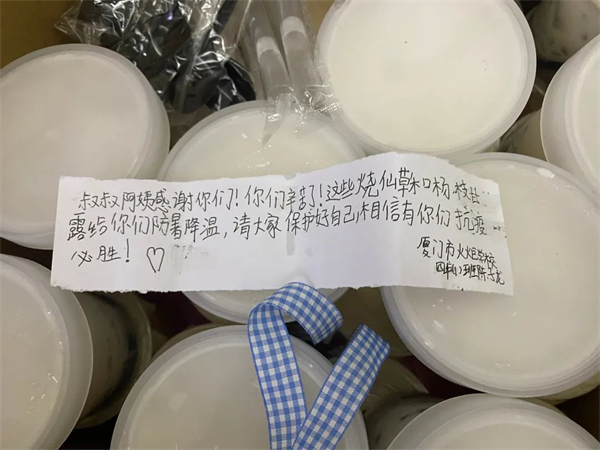 叔叔阿姨感谢你们!你们辛苦!这些烧仙草和杨枝甘
露给你们防暑降温,请大家保护好自己,相信有你们抗疫
必胜!♡
厦门市火炬学校
四年 班陈 龙